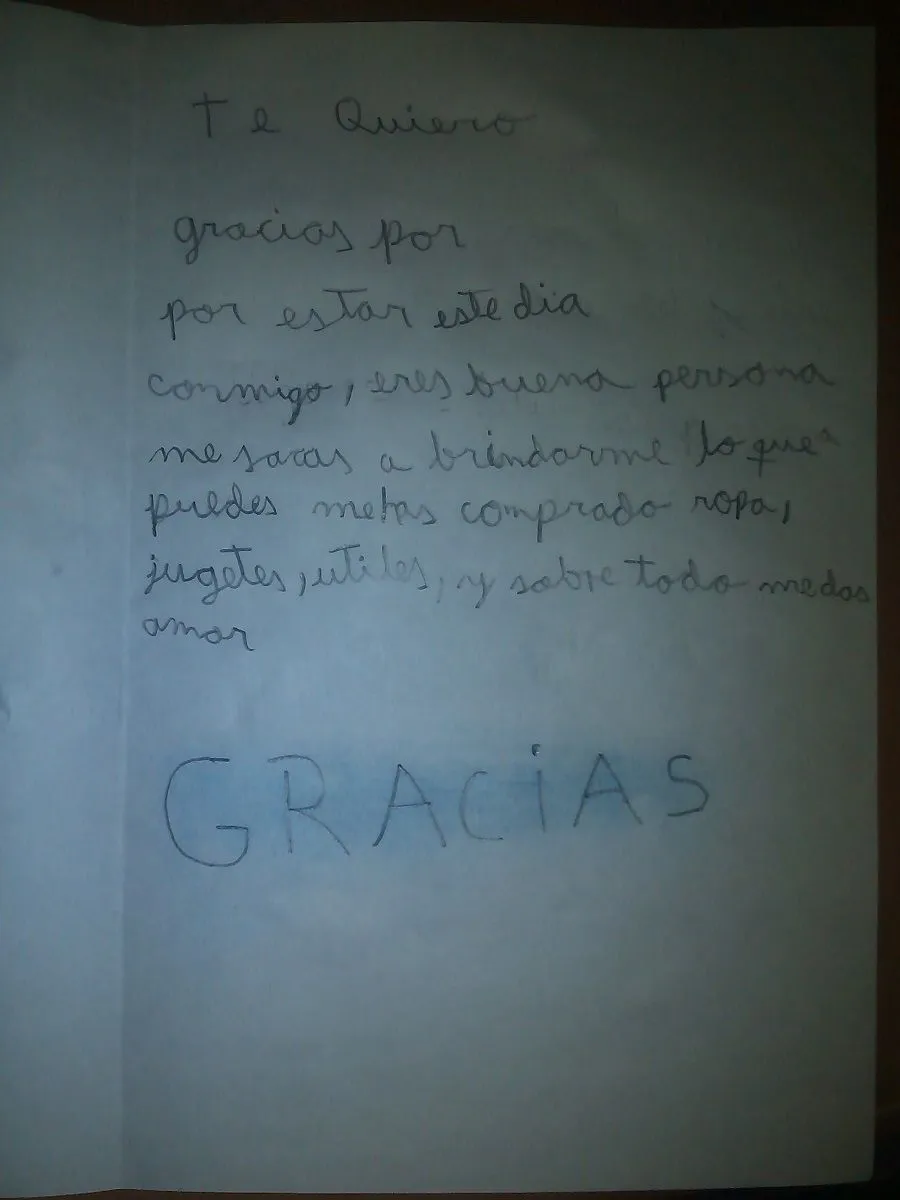 Te Quiero
gracias por
por estar este dia
conmigo, eres buena persona
me sacas a brindarme "lo que"
puedes metas comprado ropa,
jugetes, utiles, y sobre todo me das
amor
GRACiAS